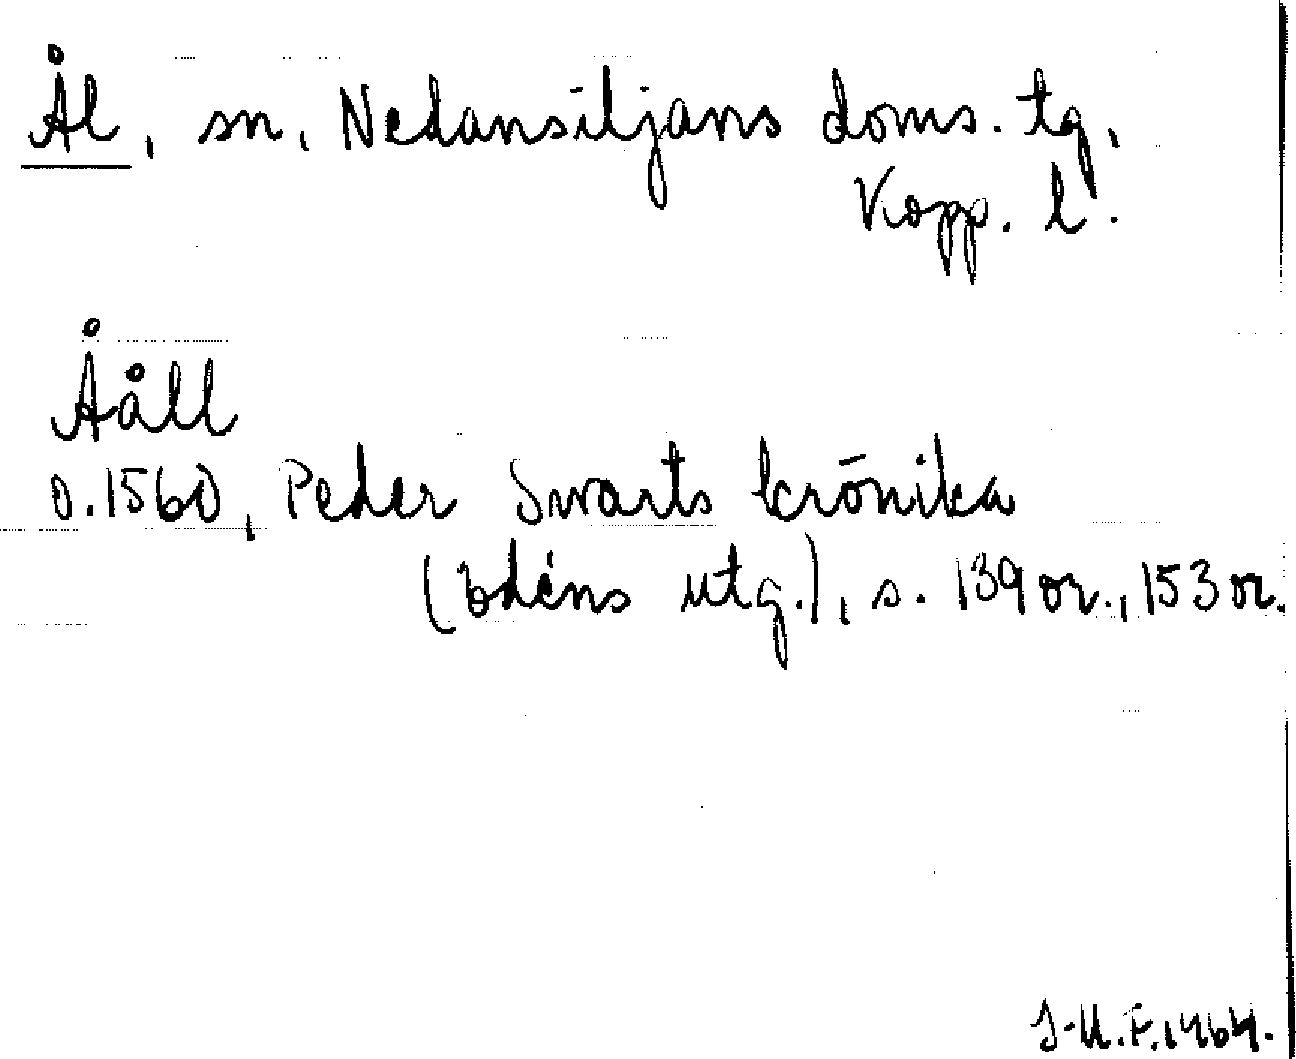 Ål, sn, Nedansiljans doms. tg,
Kopp. l.
Ååll
o. 1560, Peder Swarts krönika
(Edéns utg.), s. 139 or., 153 or.
J-U.F. 1964.